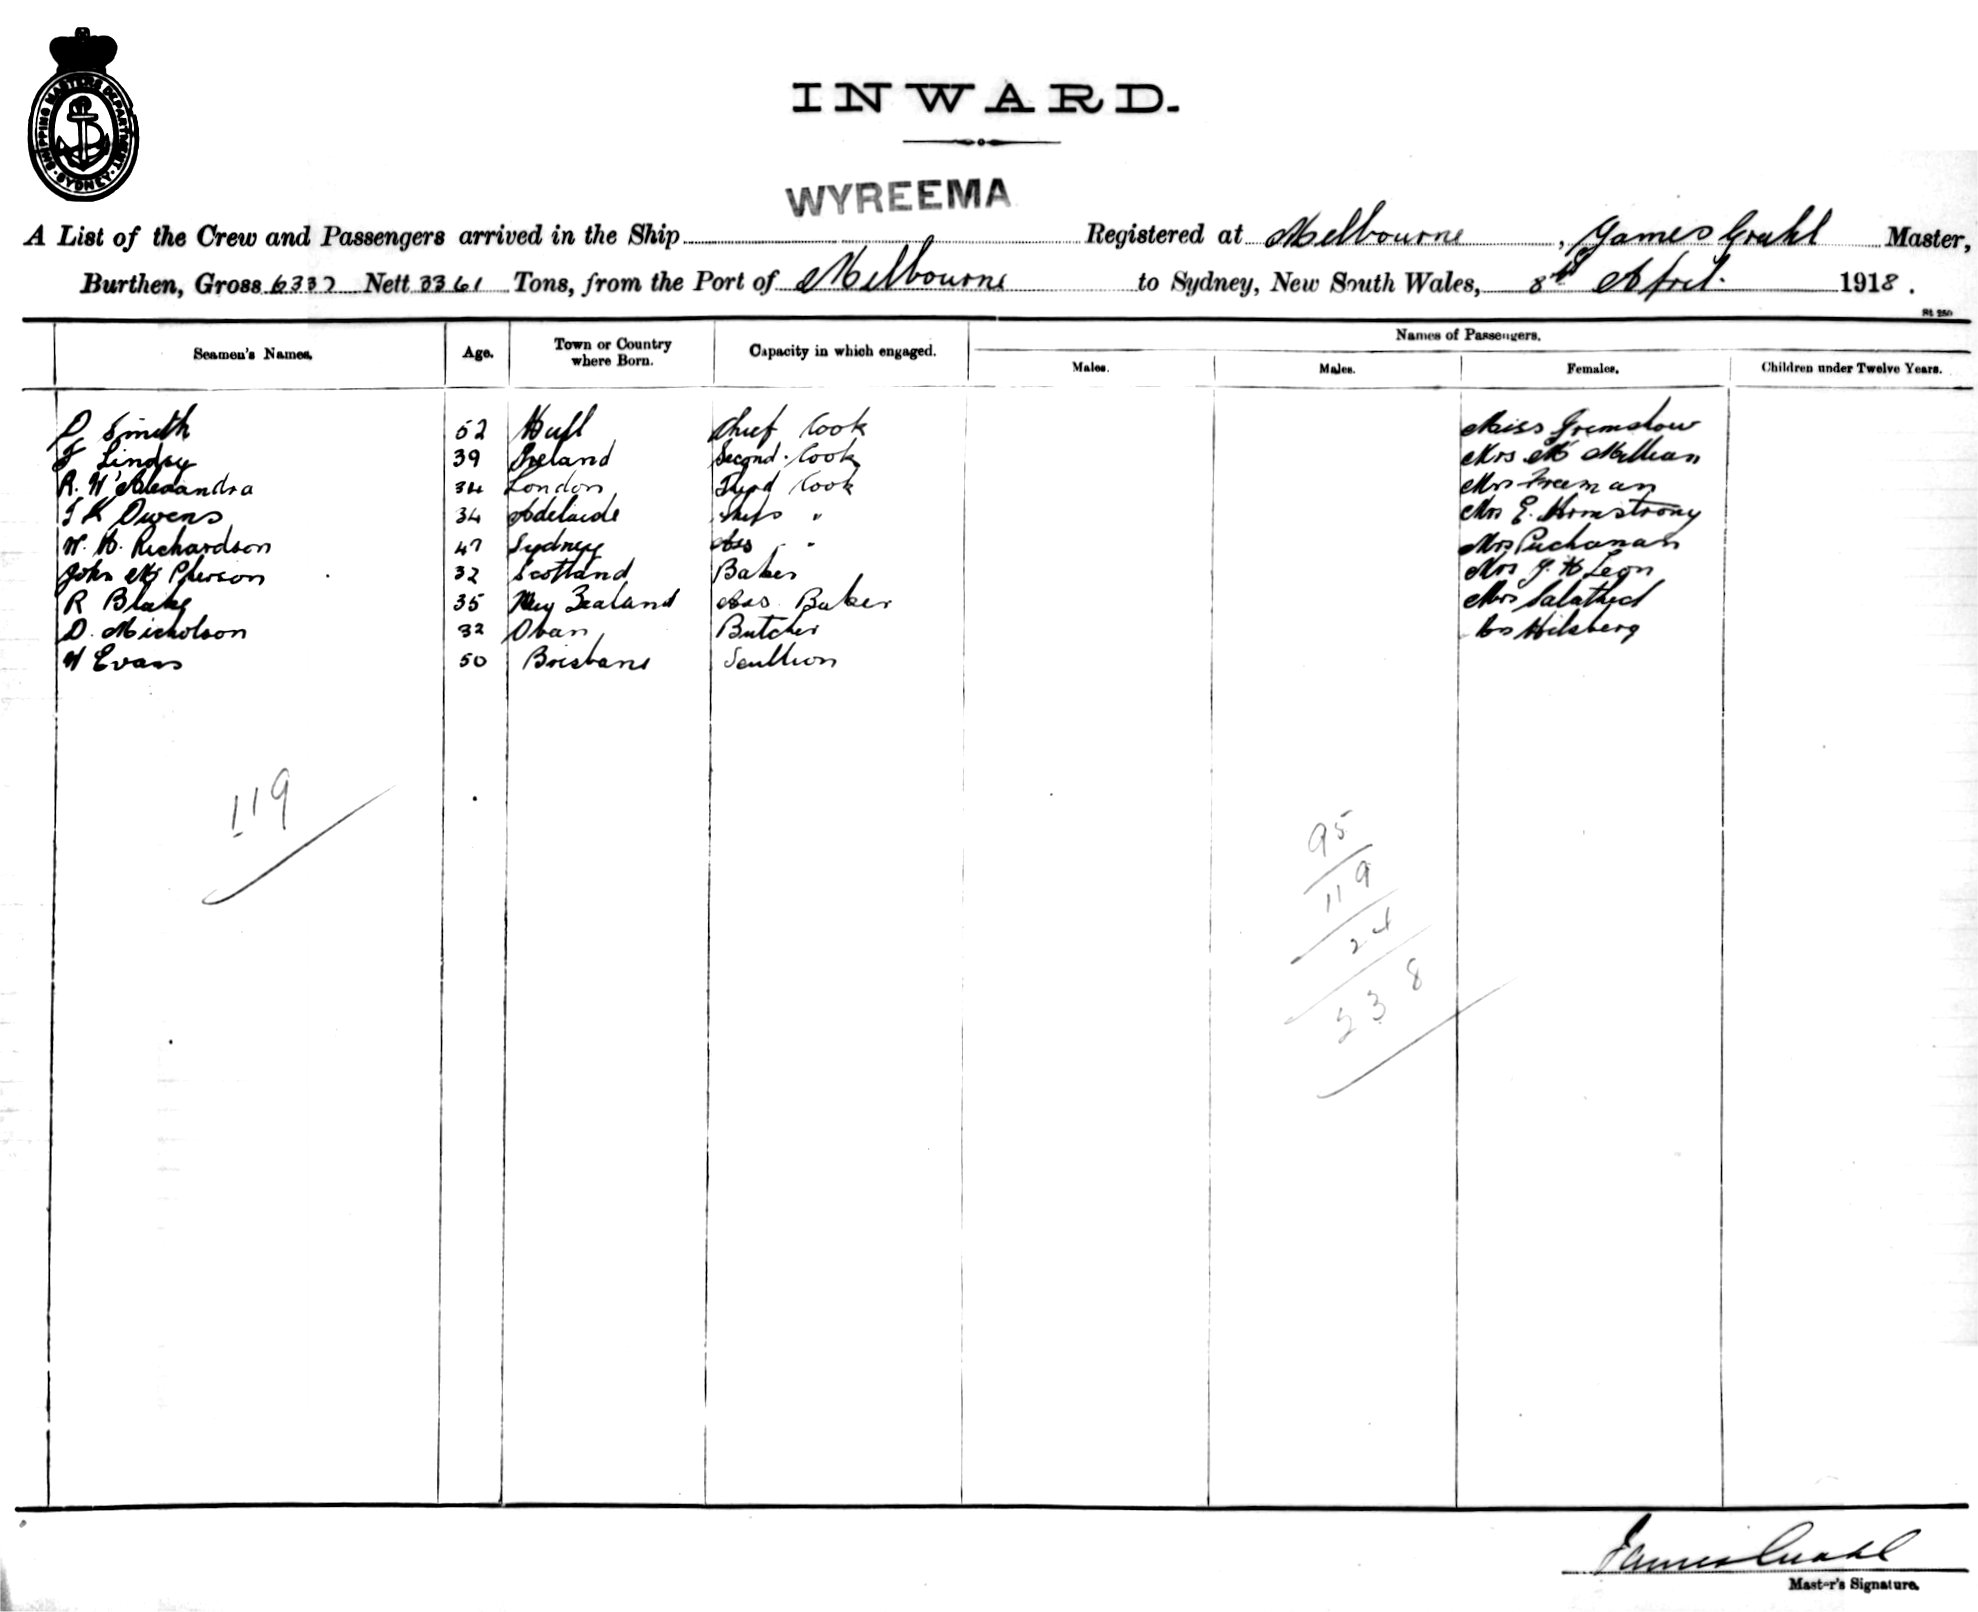 SHIPPING MASTERS DEPARTMENT · SYDNEY ·
INWARD.
WYREEMA
A List of the Crew and Passengers arrived in the Ship Registered at Melbourne, James Grahl Master,
Burthen, Gross 6332 Nett 3361 Tons, from the Port of Melbourne to Sydney, New South Wales, 8th April. 1918.
St 250
Seamen's Names. Age. Town or Country where Born. Capacity in which engaged. Names of Passengers.
Males. Males. Females. Children under Twelve Years.
D Smith 52 Hull Chief Cook Miss Grimshaw
F Lindsy 39 Ireland Second Cook Mrs Mc Mellian
R. W Alexandra 34 London Third Cook Mrs Freeman
T K Owens 34 Adelaide Ships " Mrs E. Armstrong
W. H. Richardson 47 Sydney Ass " Mrs Buchanan
John Mc Pherson 32 Scotland Baker Mrs J. H Leon
R Blake 35 New Zealand Ass. Baker Mrs
D. Nicholson 32 Oban Butcher Hilsberg
W Evans 50 Brisbane Scullion
119
95
119
24
238
James Grahl
Master's Signature.